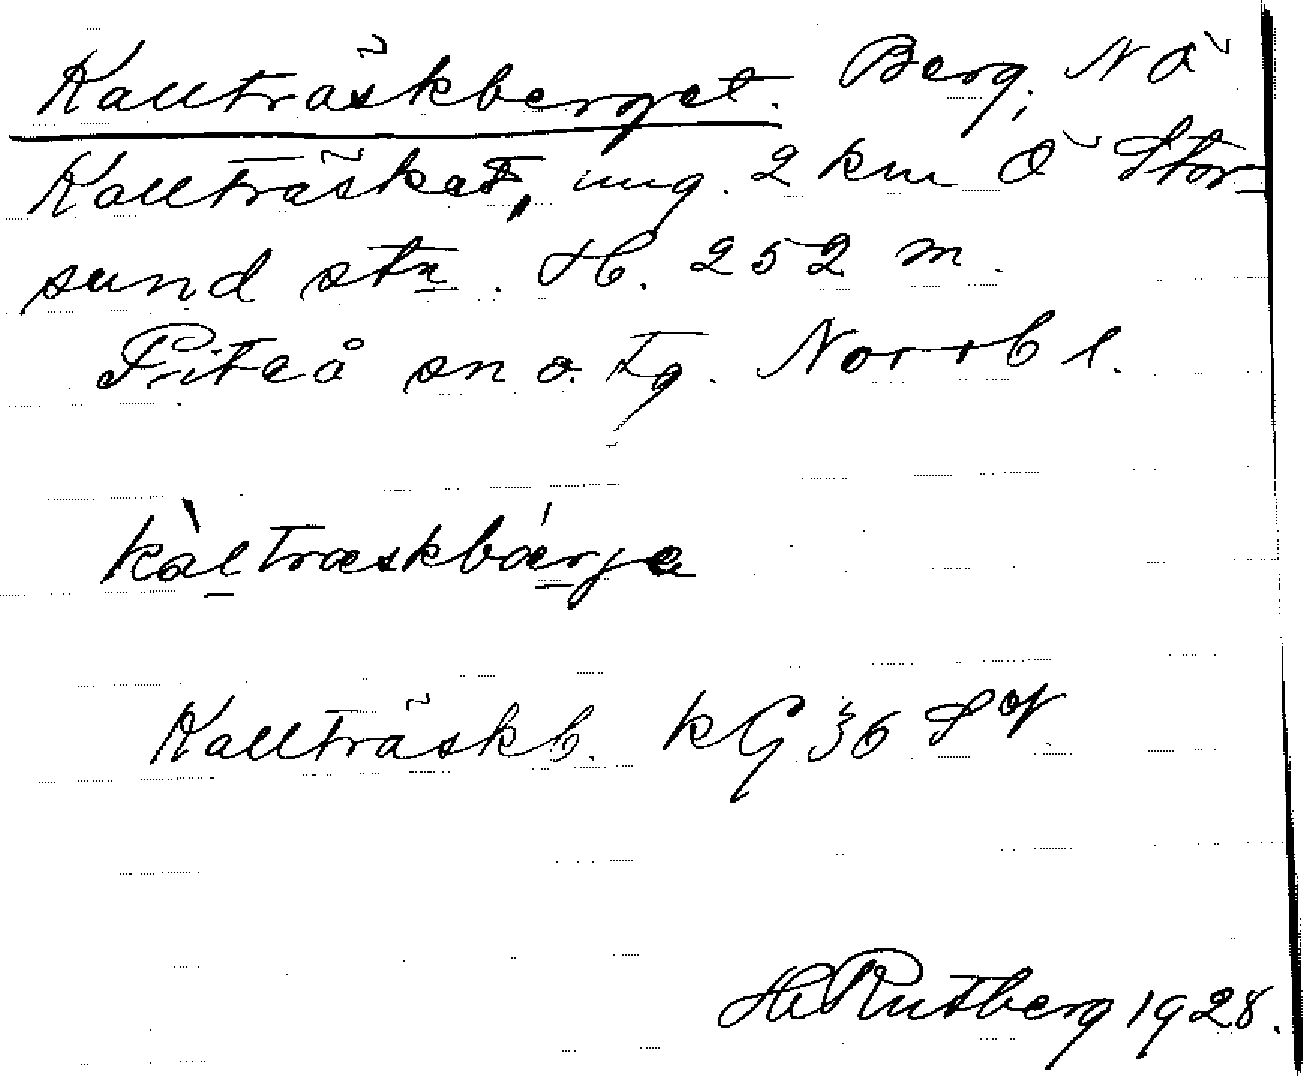 Kallträskberget. Berg, NÖ
Kallträsket, ung. 2 km Ö Stor-
sund stn. H. 252 m.
Piteå sn o. tg. Norrb l.
kàltræskbærje
Kallträskb. kG 36 SV
H Rutberg 1928.